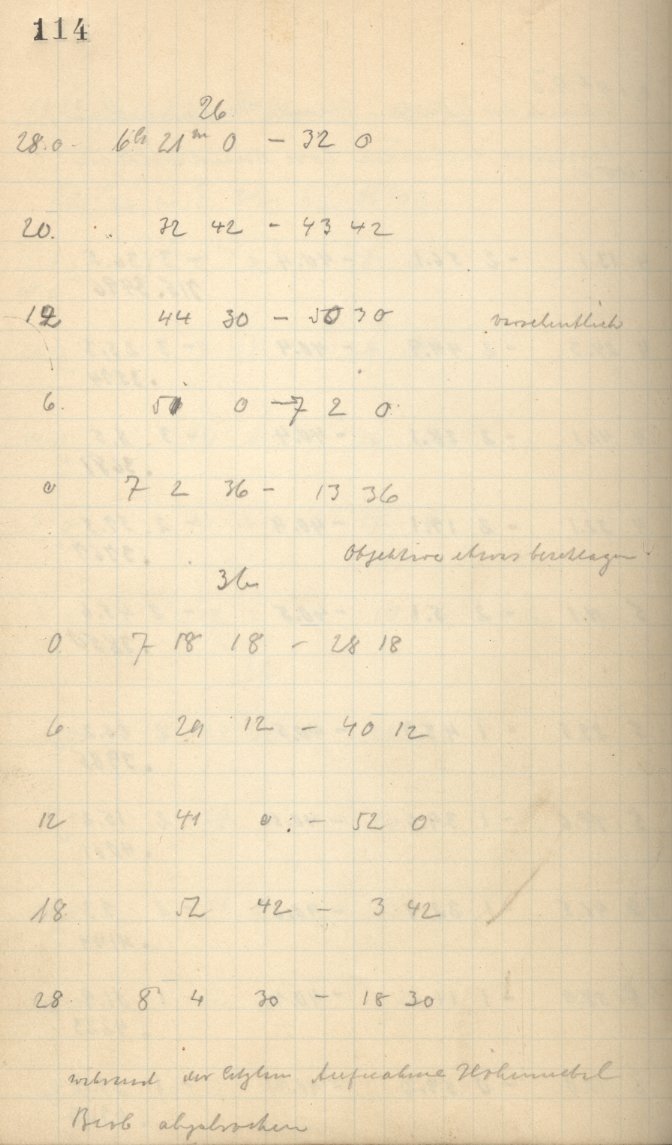 114
26
28.0 6h 21m 0 – 32 0
20. 32 42 – 43 42
12 44 30 – 50 30 versehentlich
6. 51 0 – 7 2 0
0 7 2 36 – 13 36
Objektive etwas beschlagen.
36
0 7 18 18 – 28 18
6 29 12 – 40 12
12 41 0 – 52 0
18 52 42 – 3 42
28 8 4 30 – 18 30
während der letzten Aufnahme Höhennebel
Beob abgebrochen